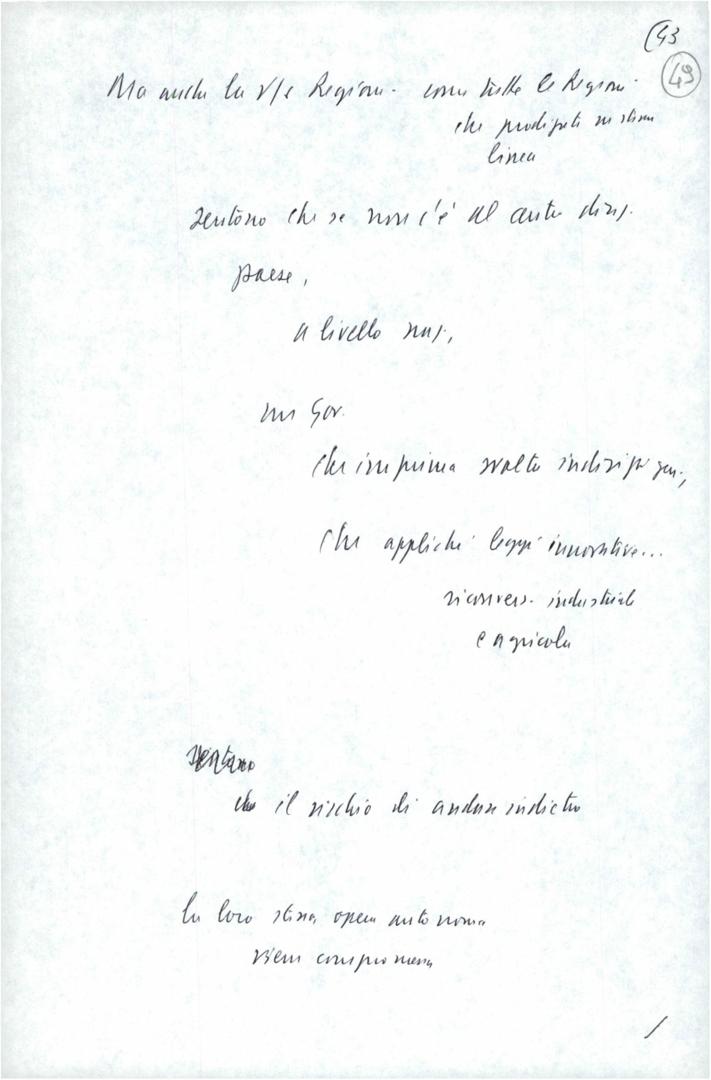 (43
49
Ma anche la V/s Regione - come tutte le Regioni -
che
in stessa
linea
sentono che se non c'è al centro diraz.
paese,
a livello naz.,
un Gov.
che imprima svolta indirizzi gen.,
che applichi leggi innovative...
riconvers. industriale
e agricola
sentono
che il rischio di andare indietro
la loro stessa opera autonoma
viene compromessa
/